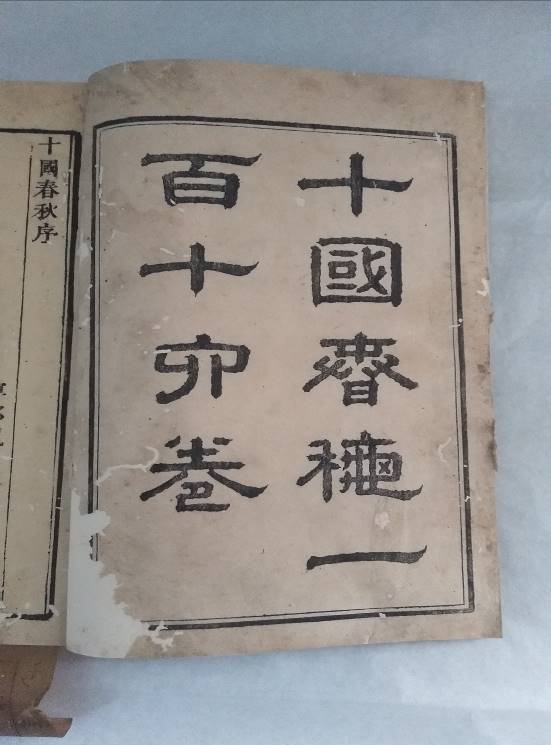 十國春秋一
百十四卷
十國春秋序